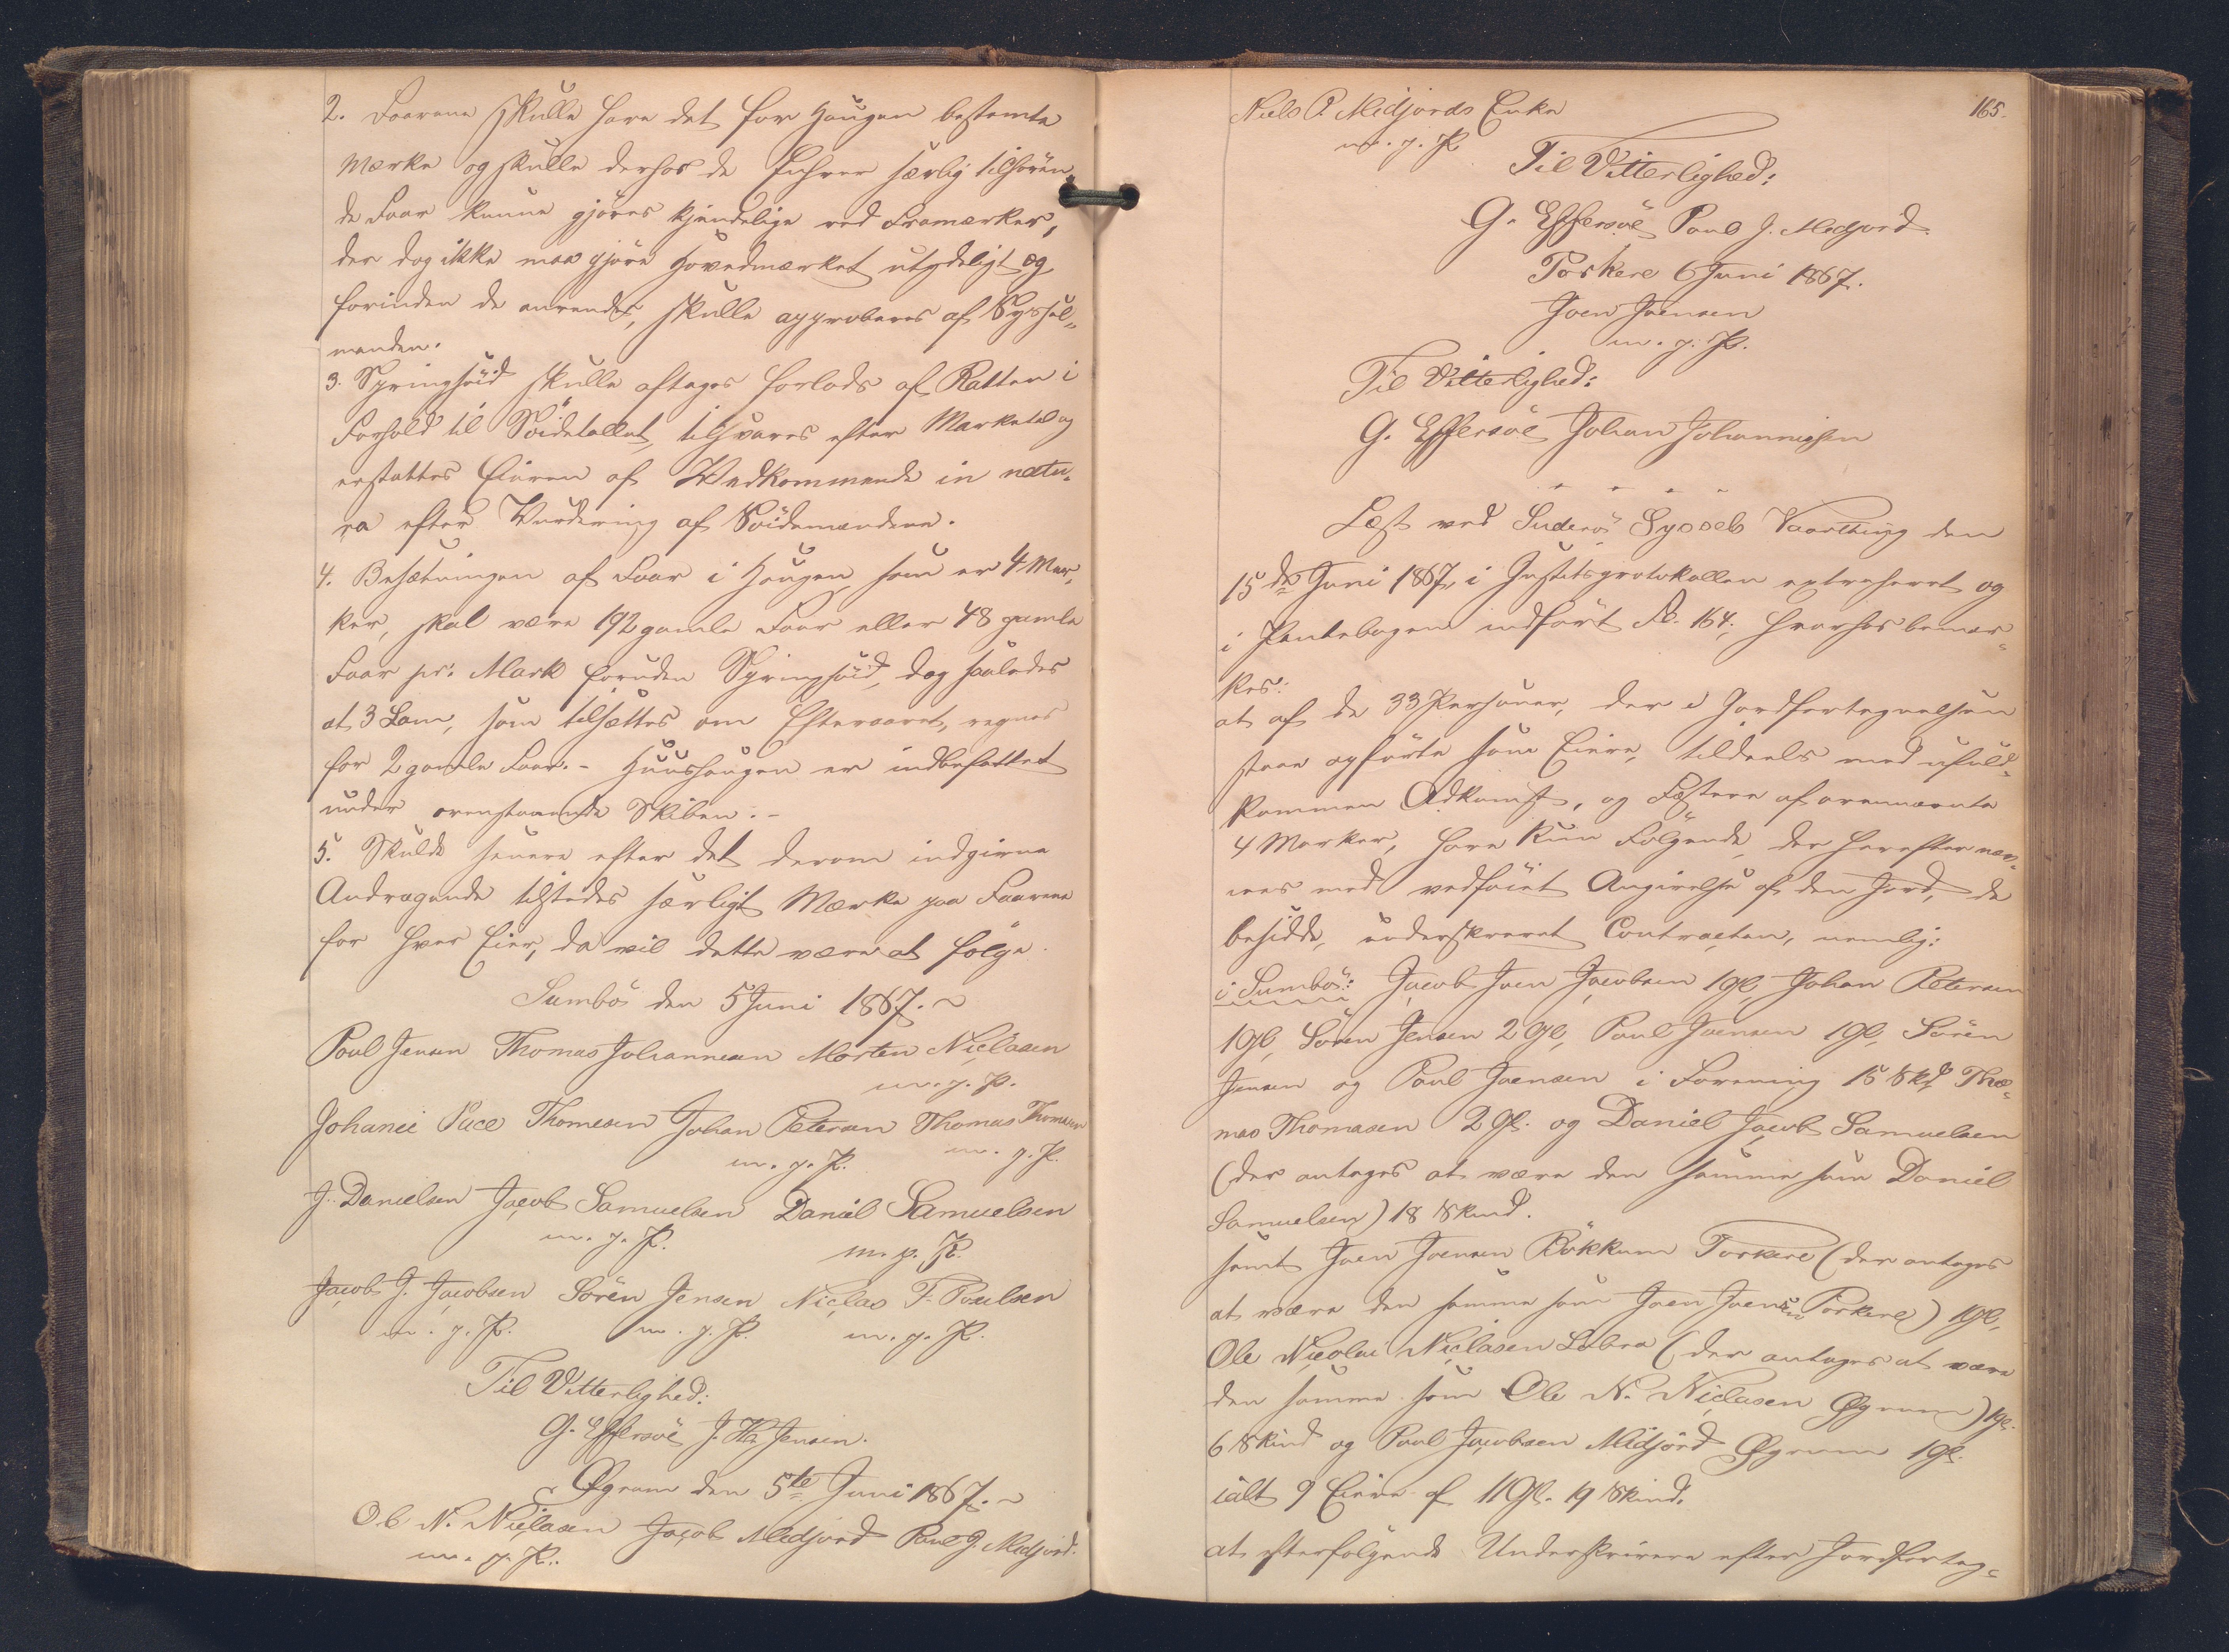 2. Faarene skulle have det for Haugen bestemte
Mærke og skulle derhos de Enhver særlig tilhøren„
de Faar kunne gjøres kjendelige ved Framærker,
der dog ikke maa gjøre Hovedmærket utydeligt og
forinden de anvendes, skulle approberes af Syssel„
manden.
3. Springhöid skulle aftages forlods af Ratten i
Forhold til Söidetallet, tilsvares efter Marketal og
erstattes Eieren af Vedkommende in natu„
ra efter Vurdering af Söidemændene.
4. Besætningen af Faar i Haugen, som er 4 Mar„
ker, skal være 192 gamle Faar eller 48 gamle
Faar pr: Mark foruden Springhöid, dog saaledes
at 3 Lam, som tilsættes om Efteraaret, regnes
for 2 gamle Faar. - Huushaugen er indbefattet
under ovenstaaende Skiben. -
5. Skulde senere efter det derom indgivne
Andragende tilstedes særligt Mærke paa Faarene
for hver Eier, da vil dette være at følge.
Sumbö den 5 Juni 1867. ~
Poul Jensen Thomas Johannesen Morten Niclasen
m. p. P.
Johanes Pace Thomesen Johan Petersen Thomas Thomasen
m. p. P. m. p. P.
J. Danielsen Jacob Samuelsen Daniel Samuelsen
m. p. P. m. p. P.
Jacob J. Jacobsen Sören Jensen Niclas F. Poulsen
m. p. P. m. p. P. m. p. P.
Til Vitterlighed:
G. Effersöe J. Hr. Jensen.
Øgrum den 5te Juni 1867. ~
Ole N. Niclasen Jacob Midjord Poul J. Midjord.
m. p. P.
165.
Niels P. Midjords Enke
m. p. P.
Til Vitterlighed:
G. Effersöe Poul J. Midjord.
Porkere 6 Juni 1867.
Joen Joensen
m. p. P.
Til Vitterlighed:
G. Effersöe Johan Johannesen
Læst ved Suderö Syssels Vaarthing den
15de Juni 1867, i Justitsprotokollen extraheret og
i Pantebogen indført Fo. 164; hvorhos bemær„
kes:
at af de 33 Personer, der i Jordfortegnelsen
staae opførte som Eiere, tildeels med ufuld„
kommen Adkomst, og Fæstere af ovennævnte
4 Marker, have kun Følgende, der herefter næv„
nes med vedføiet Angivelse af den Jord, de
besidde, underskrevet Contracten, nemlig:
i Sumbö: Jacob Joen Jacobsen 1 Gl, Johan Petersen
1 Gl, Sören Jensen 2 Gl, Poul Joensen 1 Gl, Sören
Jensen og Poul Joensen i Forening 15 Skd Tho„
mas Thomasen 2 Gl. og Daniel Jacob Samuelsen
(der antages at være den samme som Daniel
Samuelsen) 18 Skind.
samt Joen Joensen Bökkum Porkere (der antages
at være den samme som Joen Joensen Porkere) 1 Gl,
Ole Nicolai Niclasen Lobra (der antages at være
den samme som Ole N. Niclasen Øgrum) 1 Gl.
6 Skind og Poul Jacobsen Midjord Øgrum 1 Gl.
ialt 9 Eiere af 11 Gl. 19 Skind.
at efterfølgende Underskrivere efter Jordforteg„